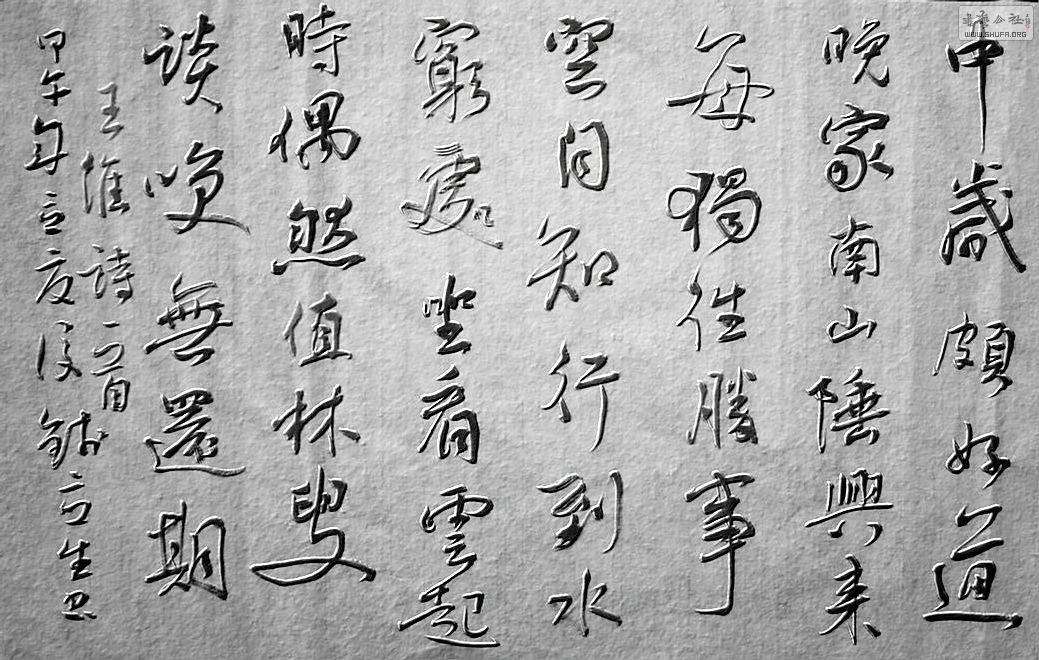 中歲頗好道
晚家南山陲興來
每獨往勝事
空自知行到水
窮處坐看雲起
時偶然值林叟
談咲無還期
王維詩一首
甲午年立夏後立生书
書藝公社
WWW.SHUFA.ORG